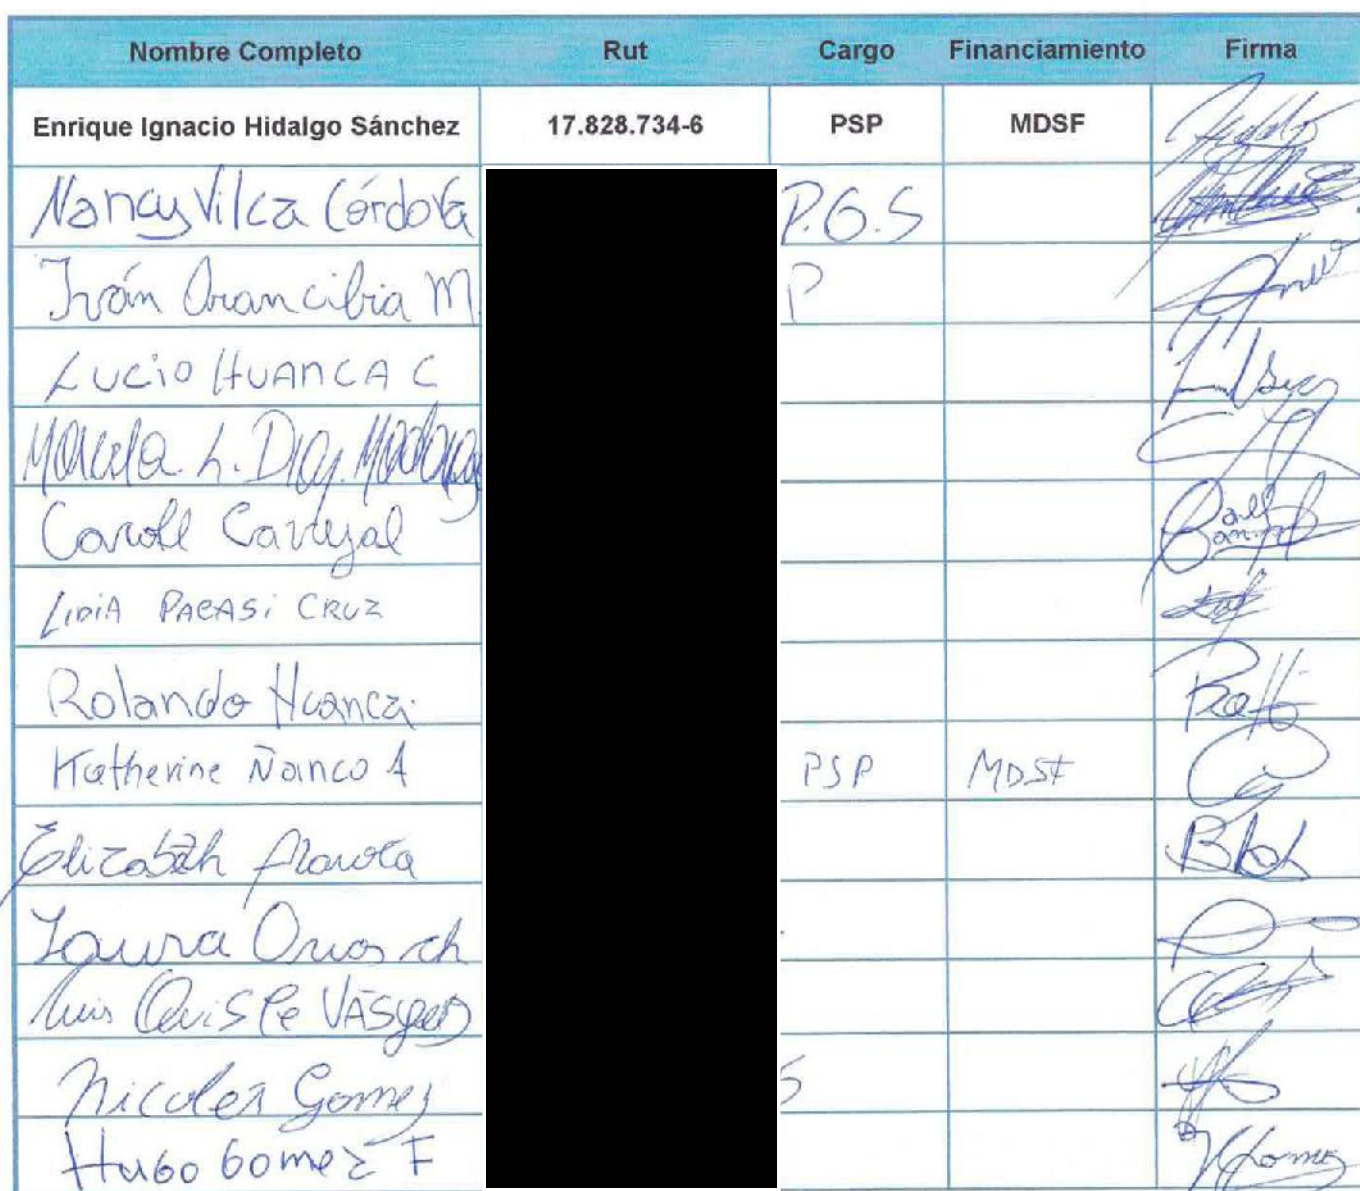 Nombre Completo Rut Cargo Financiamiento Firma
Enrique Ignacio Hidalgo Sánchez 17.828.734-6 PSP MDSF
Nancy Vilca Córdova P.G.S
Iván Arancibia M. P
Lucio HUANCA C
Marcela L. Diaz
Caroll Carvajal
LIDIA PACASi CRUZ
Rolando Huanca
Katherine Ñanco A PSP MDSF
Elizabeth
Laura
Luis Quispe VÁSquez
Nicolás Gomez S
Hugo Gomez F Gomez